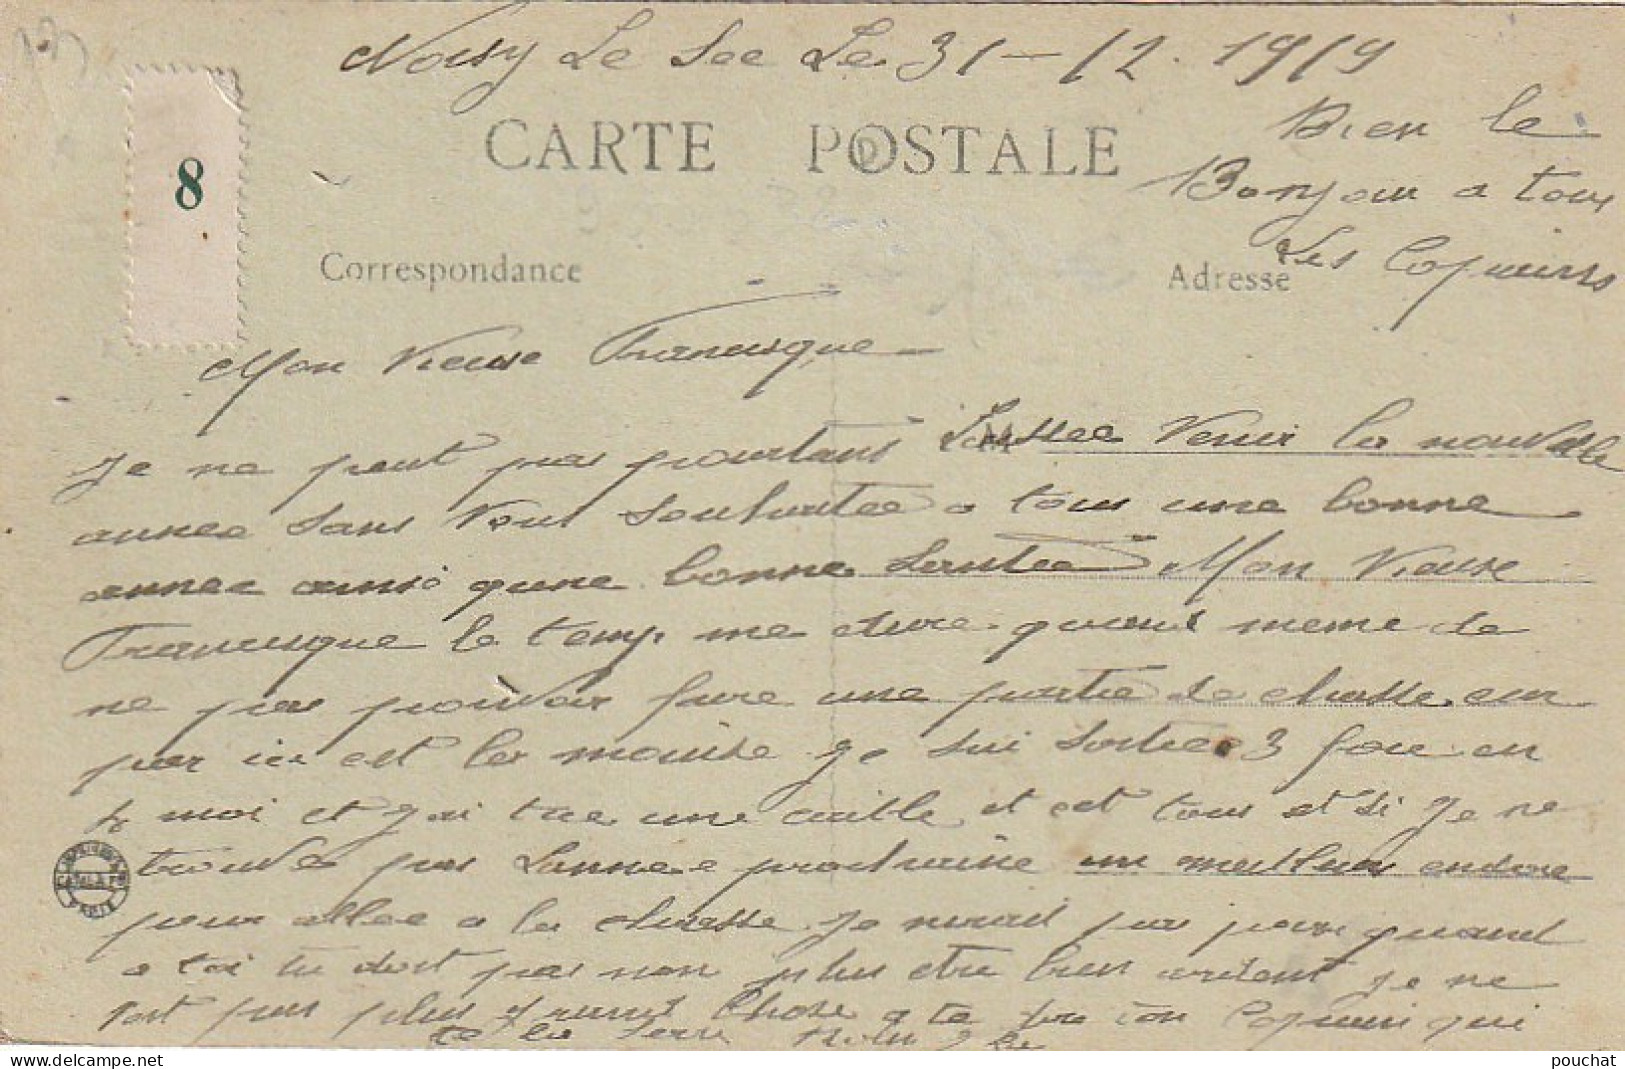 Noisy Le Sec Le 31-12.1919
CARTE POSTALE
8
Bien le
Bonjour a tous
Les Copains
Correspondance
Adresse
Mon Vieuse Francisque
Je ne peut pas pourtant Laissee venir la nouvelle
annee sans vous souhaitee a tous une bonne
annee ainsi qune bonne santee Mon Vieuse
Francisque le temp me dure quand meme de
ne pas pouvoir faire une partie de chasse car
par ici est la mauise je sui sortie 3 foie en
moi et jai tuee une caille et cet tous et si je ne
trouve pas lannee prochaine un meilleur endroi
pour allee a la chasse je nirait pas quand
a toi tu doit pas non plus etre bien ardent je ne
voit pas plus grand chose a te dire ton Copain qui
te la serre
PARIS
pouchat
DELCAMPE.NET